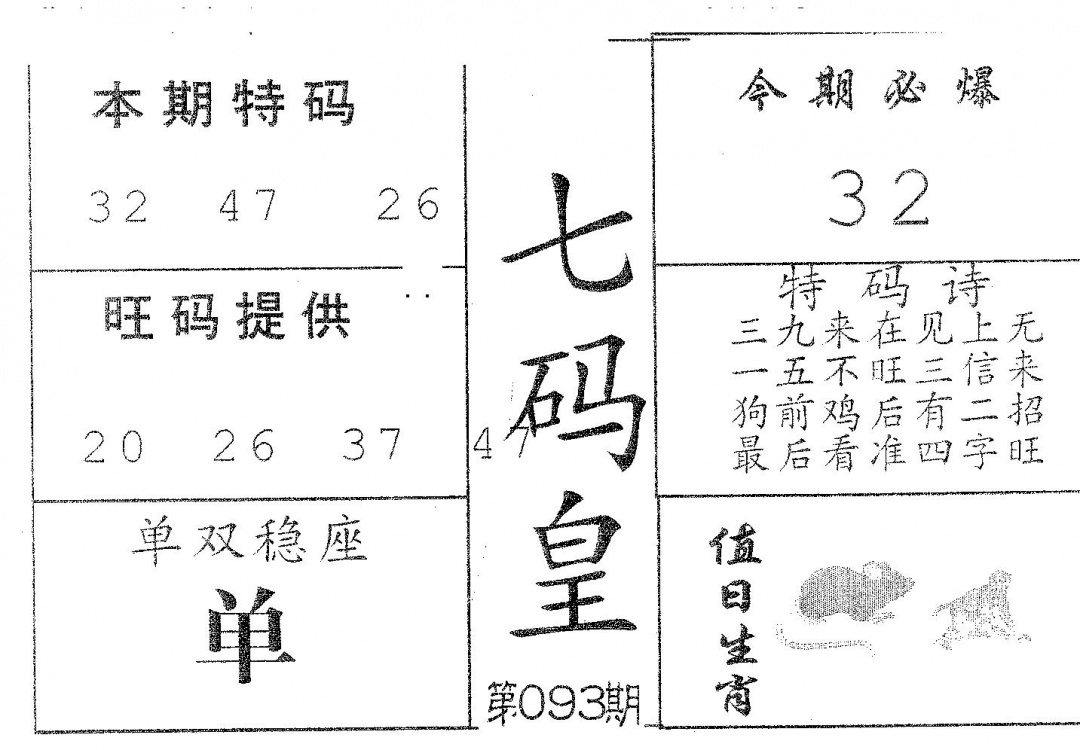 本期特码
32 47 26
旺码提供
20 26 37 47
单双稳座
单
七码皇
第093期
今期必爆
32
特码诗
三九来在见上无
一五不旺三信来
狗前鸡后有二招
最后看准四字旺
值日生肖